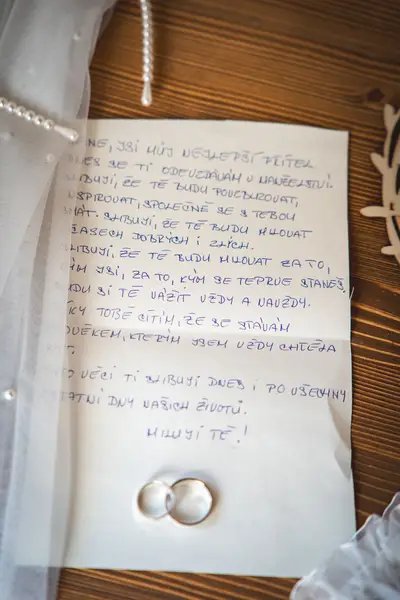 NE, JSI MŮJ NEJLEPŠÍ PŘÍTEL
NES SE TI ODEVZDÁVÁM V MANŽELSTVÍ.
IBUJI, ŽE TĚ BUDU POVZBUZOVAT,
NSPIROVAT, SPOLEČNĚ SE S TEBOU
ÁT. SLIBUJI, ŽE TĚ BUDU MILOVAT
ČASECH DOBRÝCH I ZLÝCH.
LIBUJI, ŽE TĚ BUDU MILOVAT ZA TO,
ÝM JSI, ZA TO, KÝM SE TEPRVE STANEŠ.
UDU SI TĚ VÁŽIT VŽDY A NAVŽDY.
ÍKY TOBĚ CÍTÍM, ŽE SE STÁVÁM
OVĚKEM, KTERÝM JSEM VŽDY CHTĚLA
T.
TO VĚCI TI SLIBUJI DNES I PO VŠECHNY
STATNÍ DNY NAŠICH ŽIVOTŮ.
MILUJI TĚ!